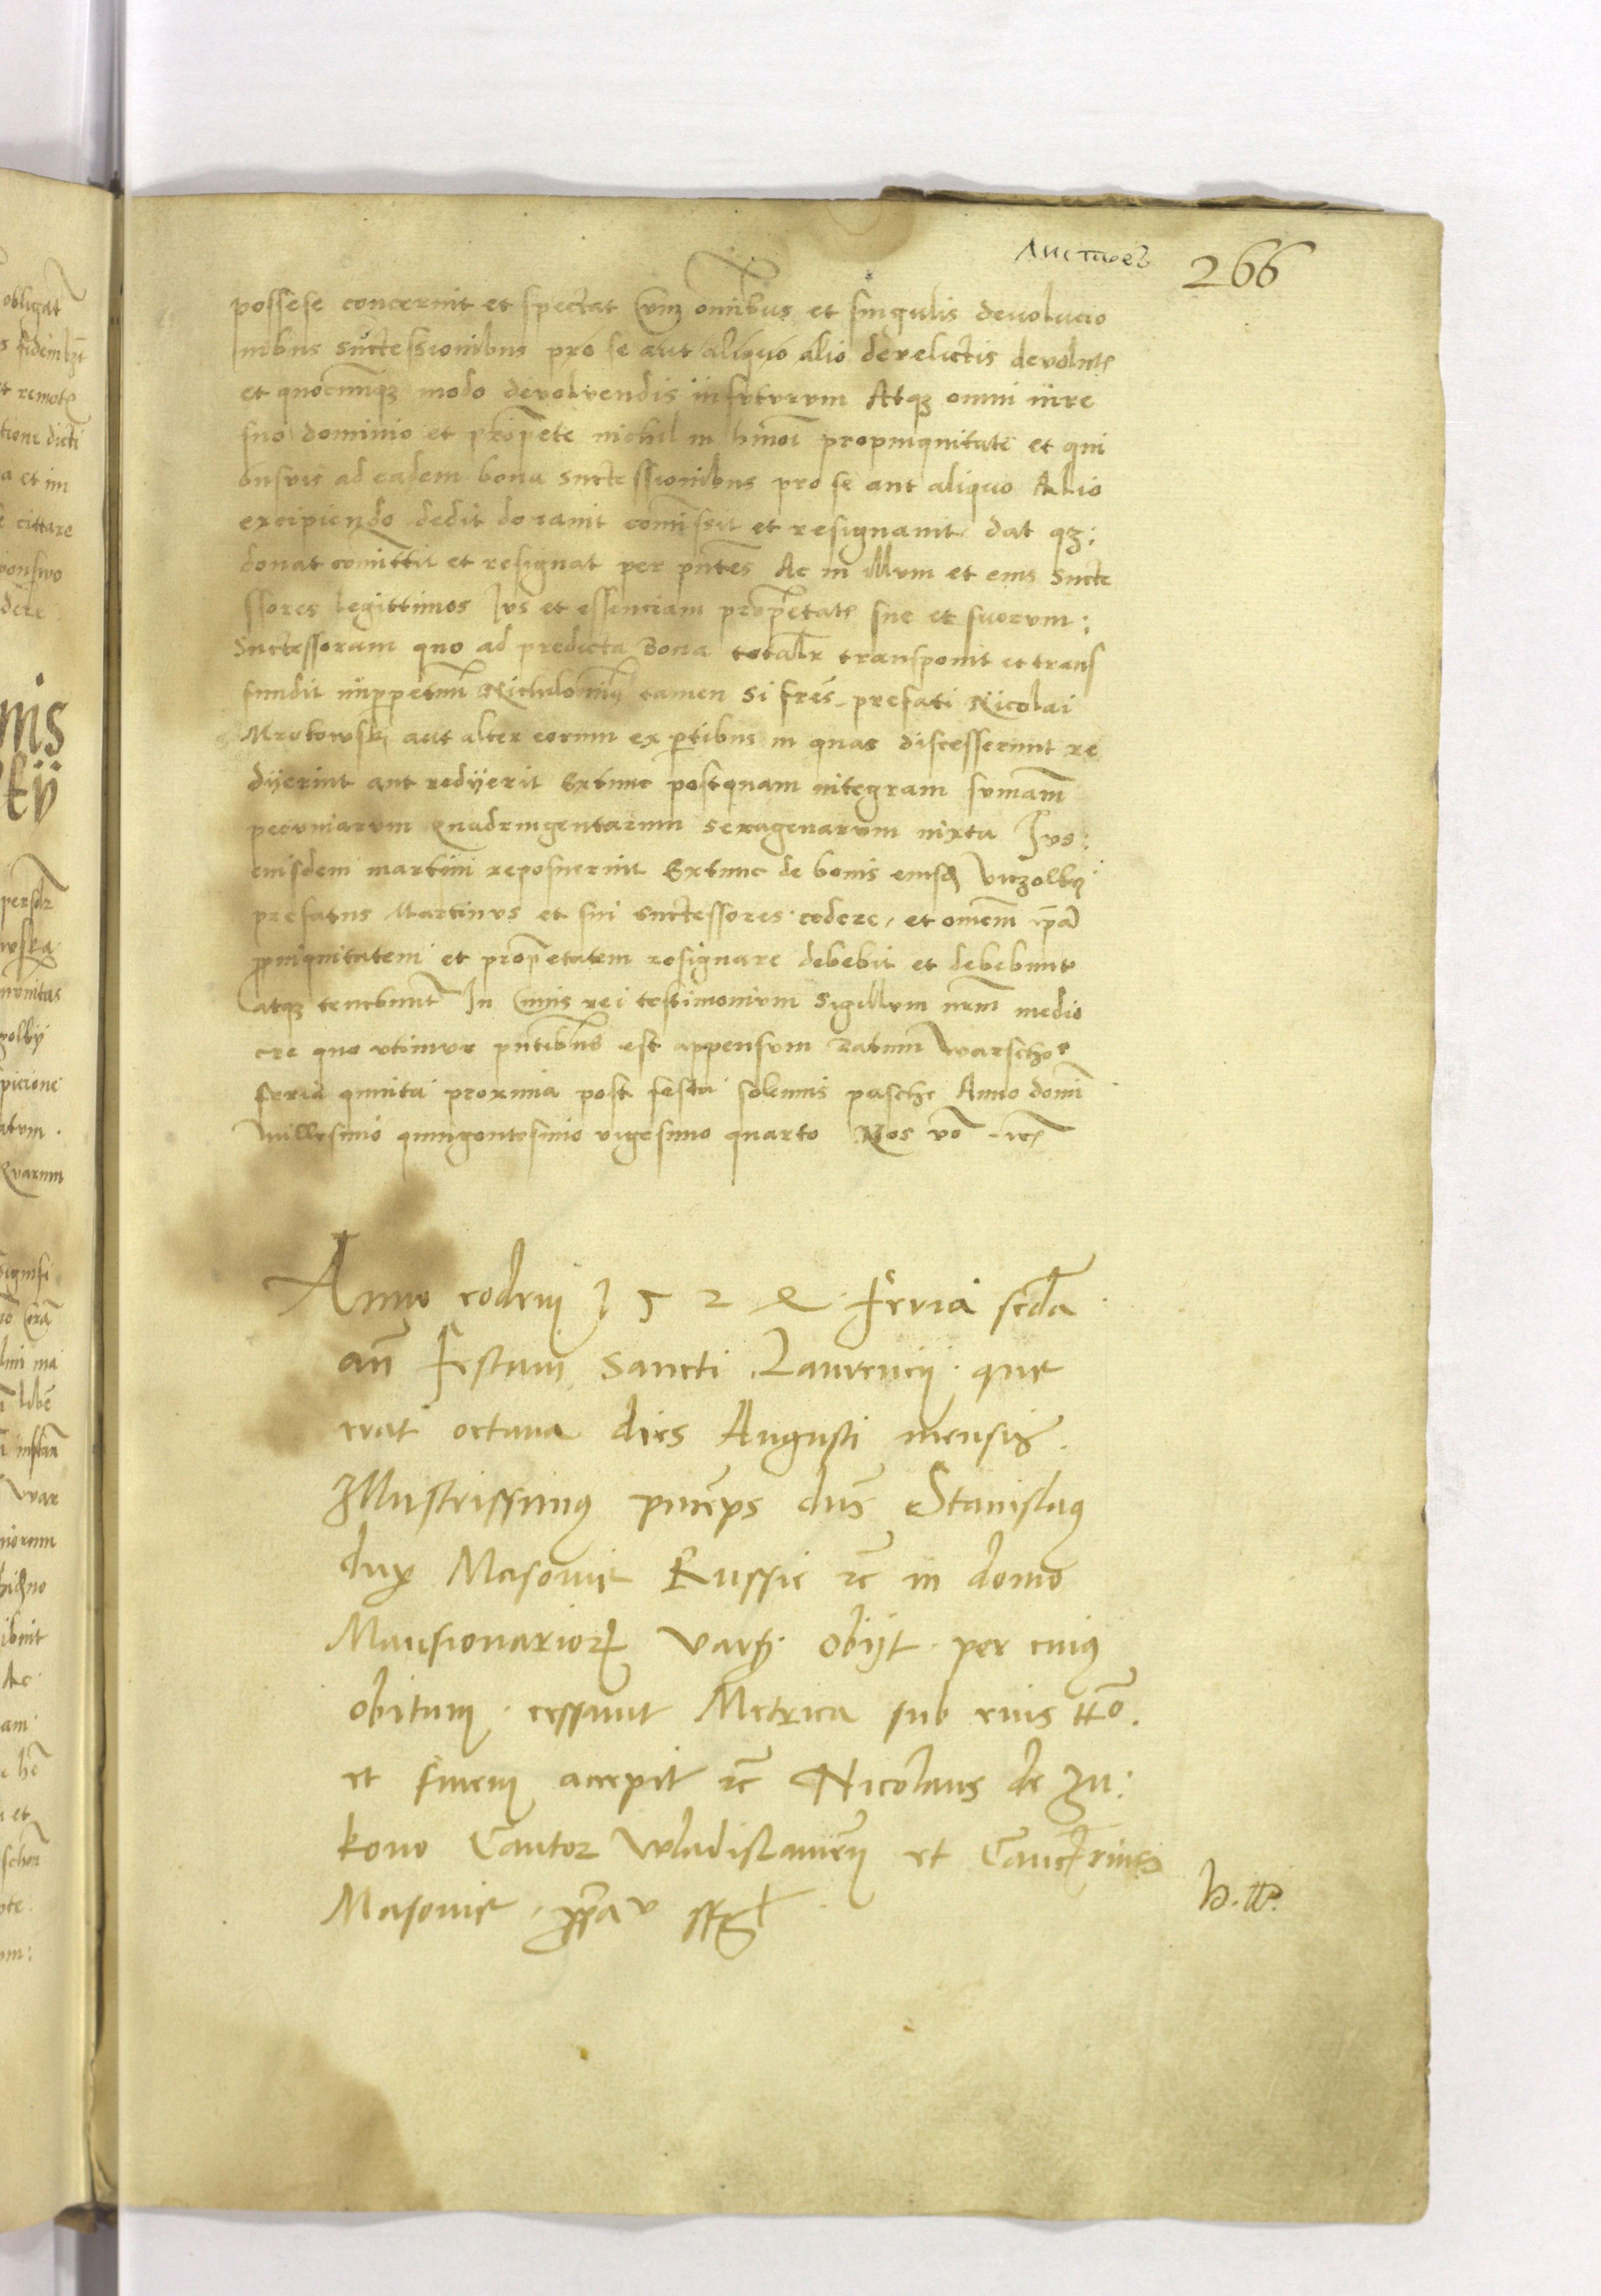 листовъ 266
possese concernit et spectat Cum om̄ibus et singulis deuolucio
nibus successionibus pro se aut aliquo alio derelictis devolutꝭ
et quocumqꝫ modo devoluendis in futurum Atqꝫ omni iure
suo dominio et ꝓprietate nichil in hm̄oi propinquitate et qui
busuis ad eadem bona successionibus pro se aut aliquo Alio
excipiendo dedit donauit com̄issit et resignauit dat qꝫ:
donat comittit et resignat per pn̄tes Ac in illum et eius Succe
ssores legittimos Ius et essenciam proprietatꝭ sue et suorum:
Successorum quo ad predicta Bona totalr̄ transponit et trans
fundit inꝑpetuum Nichilominus tamen si frēs prefati Nicolai
Mrokowski aut alter eorum ex ꝑtibus in quas discesserunt re
dyerint aut redyerit Extunc postquam integram sum̄am
pecuniarum Quadringentarum sexagenarum iuxta Ius:
eiusdem martini reposuerint Extunc de bonis eiusd
prefatus Martinus et sui successores cedere, et omnem ip̄am
ꝓpinquitatem et proprietatem resignare debebit et debebunt
atqꝫ tenebunt̄ In Cuius rei testimonium Sigillum nr̄m medio
cre quo vtimur pn̄tibus est appensum Datum Warschoꝫ
feria quinta proxima post festa solemnis pasche Anno domi
millesimo quingentesimo vigesimo quarto Nos vō etꝭ
Anno eodem 1 5 2 4 Feria scd̄a
an̄ Festum Sancti Laurencij que
erat octaua dies Augusti mensis.
Illustrissimus princeps dn̄s Stanislaus
dux Masouie Russie etc̄ in domo
Mansionarioꝝ Varsch obijt per cuius
obitum cessauit Metrica sub eius tt̄o.
et finem accepit etc̄ Nicolaus de Zu:
kowo Cantor Wladislauień et Cancell̄rius
Masouie ꝓpria